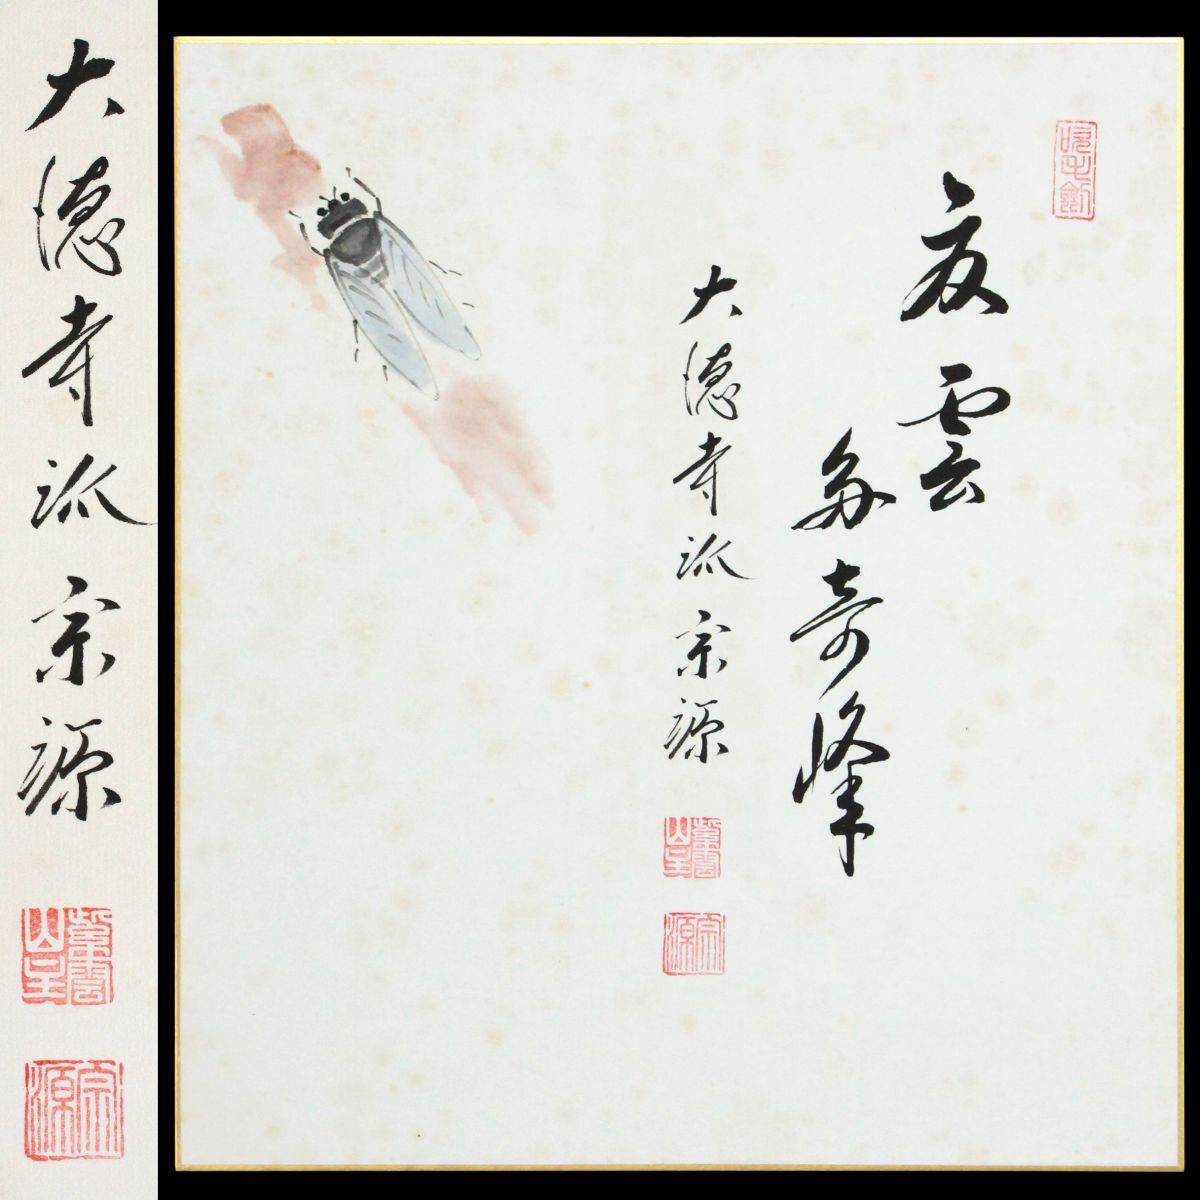 夏雲
多奇峰
大徳寺派 宗源
宗源
大徳寺派 宗源
宗源